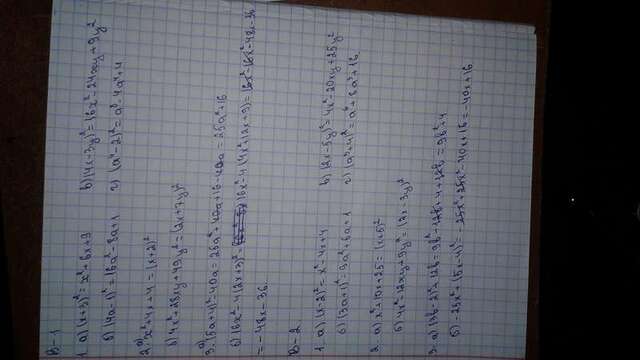 В-1
1. а) (x+3)²=x²+6x+9 в) (4x-3y)²=16x²-24xy+9y²
б) (4a-1)²=16a²-8a+1 г) (a⁴-2)²=a⁸-4a⁴+4
2. а) x²+4x+4=(x+2)²
б) 4x²+28xy+49y²=(2x+7y)²
3. а) (5a+4)²-40a=25a²+40a+16-40a=25a²+16
б) 16x²-4(2x+3)²= 16x²-4(4x²+12x+9)=16x²-16x²-48x-36
=-48x-36.
В-2
1. а) (x-2)²=x²-4x+4 в) (2x-5y)²=4x²-20xy+25y²
б) (3a+1)²=9a²+6a+1 г) (a³+4)²=a⁶+8a³+16
2. а) x²+10x+25=(x+5)²
б) 4x²-12xy+9y²=(2x-3y)²
3. а) (3b-2)²+12b=9b²-12b+4+12b=9b²+4
б) -25x²+(5x-4)²=-25x²+25x²-40x+16=-40x+16